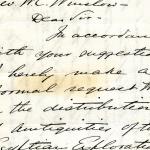 M. Winslow—
Dear Sir—
In accordan
with your suggestio
I hereby make a
formal request
the distribution
Antiquities of
Egyptian Explorati